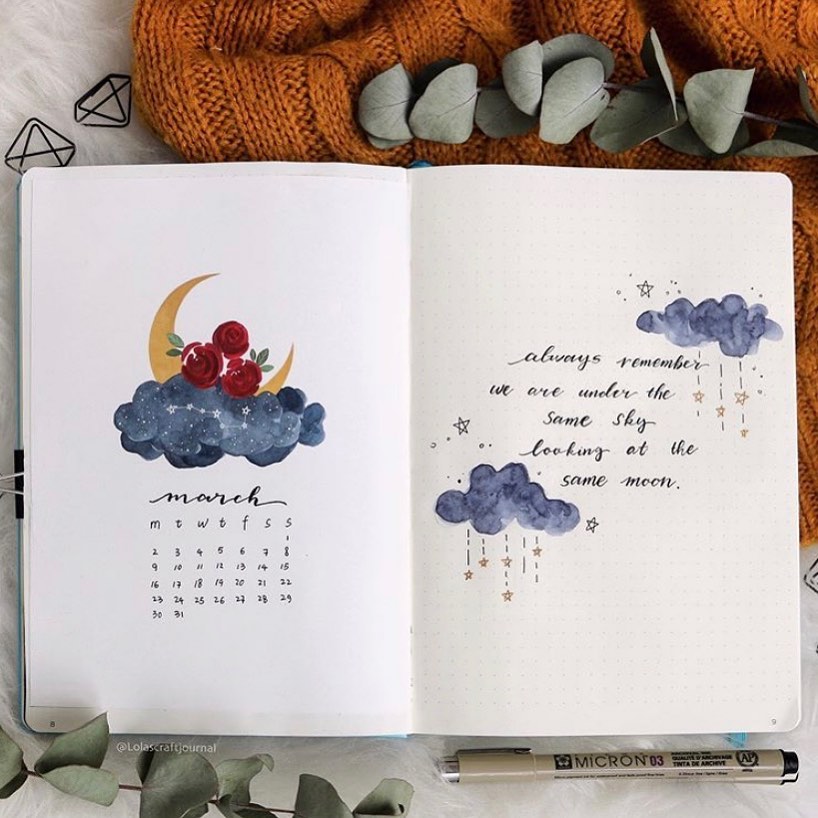 march
m t w t f s s
1
2 3 4 5 6 7 8
9 10 11 12 13 14 15
16 17 18 19 20 21 22
23 24 25 26 27 28 29
30 31
8
@Lolascraftjournal
always remember
we are under the
same sky
looking at the
same moon.
9
MICRON 03
QUALITÉ DE ARCHIVE
TINTA DE ARCHIVE
AP